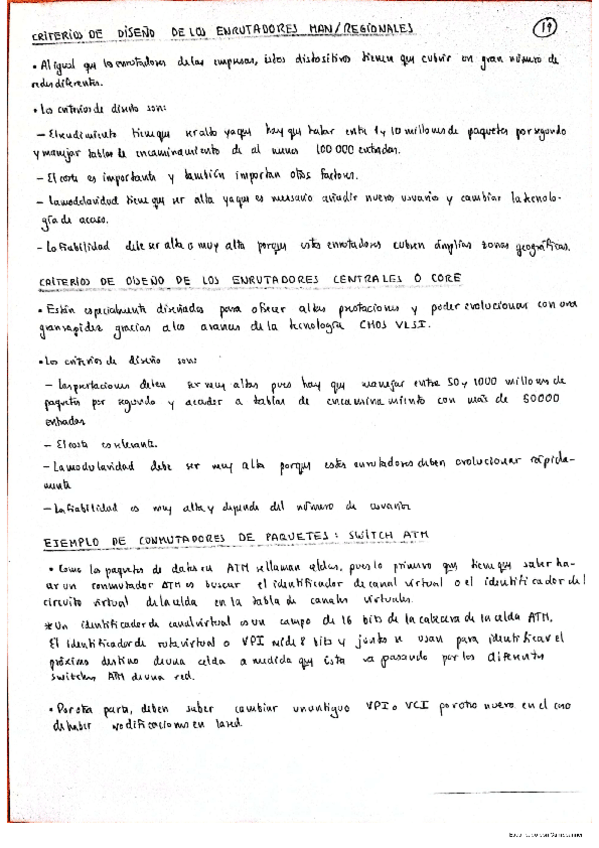 CRITERIOS DE DISEÑO DE LOS ENRUTADORES MAN/REGIONALES
19
• Al igual que los enrutadores de las empresas, estos dispositivos tienen que cubrir un gran número de
redes diferentes.
• Los criterios de diseño son:
- El rendimiento tiene que ser alto ya que hay que tratar entre 1 y 10 millones de paquetes por segundo
y manejar tablas de encaminamiento de al menos 100 000 entradas.
- El coste es importante y también importan otros factores.
- La modularidad tiene que ser alta ya que es necesario añadir nuevos usuarios y cambiar la tecnolo-
gía de acceso.
- La fiabilidad debe ser alta o muy alta porque estos enrutadores cubren amplias zonas geográficas.
CRITERIOS DE DISEÑO DE LOS ENRUTADORES CENTRALES O CORE
• Están especialmente diseñados para ofrecer altas prestaciones y poder evolucionar con una
gran rapidez gracias a los avances de la tecnología CMOS VLSI.
• Los criterios de diseño son:
- Las prestaciones deben ser muy altas pues hay que manejar entre 50 y 1000 millones de
paquetes por segundo y acceder a tablas de encaminamiento con más de 50000
entradas
- El coste es relevante.
- La modularidad debe ser muy alta porque estos enrutadores deben evolucionar rápida-
mente
- La fiabilidad es muy alta y depende del número de usuarios
EJEMPLO DE CONMUTADORES DE PAQUETES: SWITCH ATM
• Como los paquetes de datos en ATM se llaman celdas, pues lo primero que tiene que saber ha-
cer un conmutador ATM es buscar el identificador de canal virtual o el identificador del
circuito virtual de la celda en la tabla de canales virtuales.
* Un identificador de canal virtual es un campo de 16 bits de la cabecera de la celda ATM.
El identificador de ruta virtual o VPI mide 8 bits y juntos se usan para identificar el
próximo destino de una celda a medida que ésta va pasando por los diferentes
switches ATM de una red.
• Por otra parte, deben saber cambiar un antiguo VPI o VCI por otro nuevo en el caso
de haber modificaciones en la red.